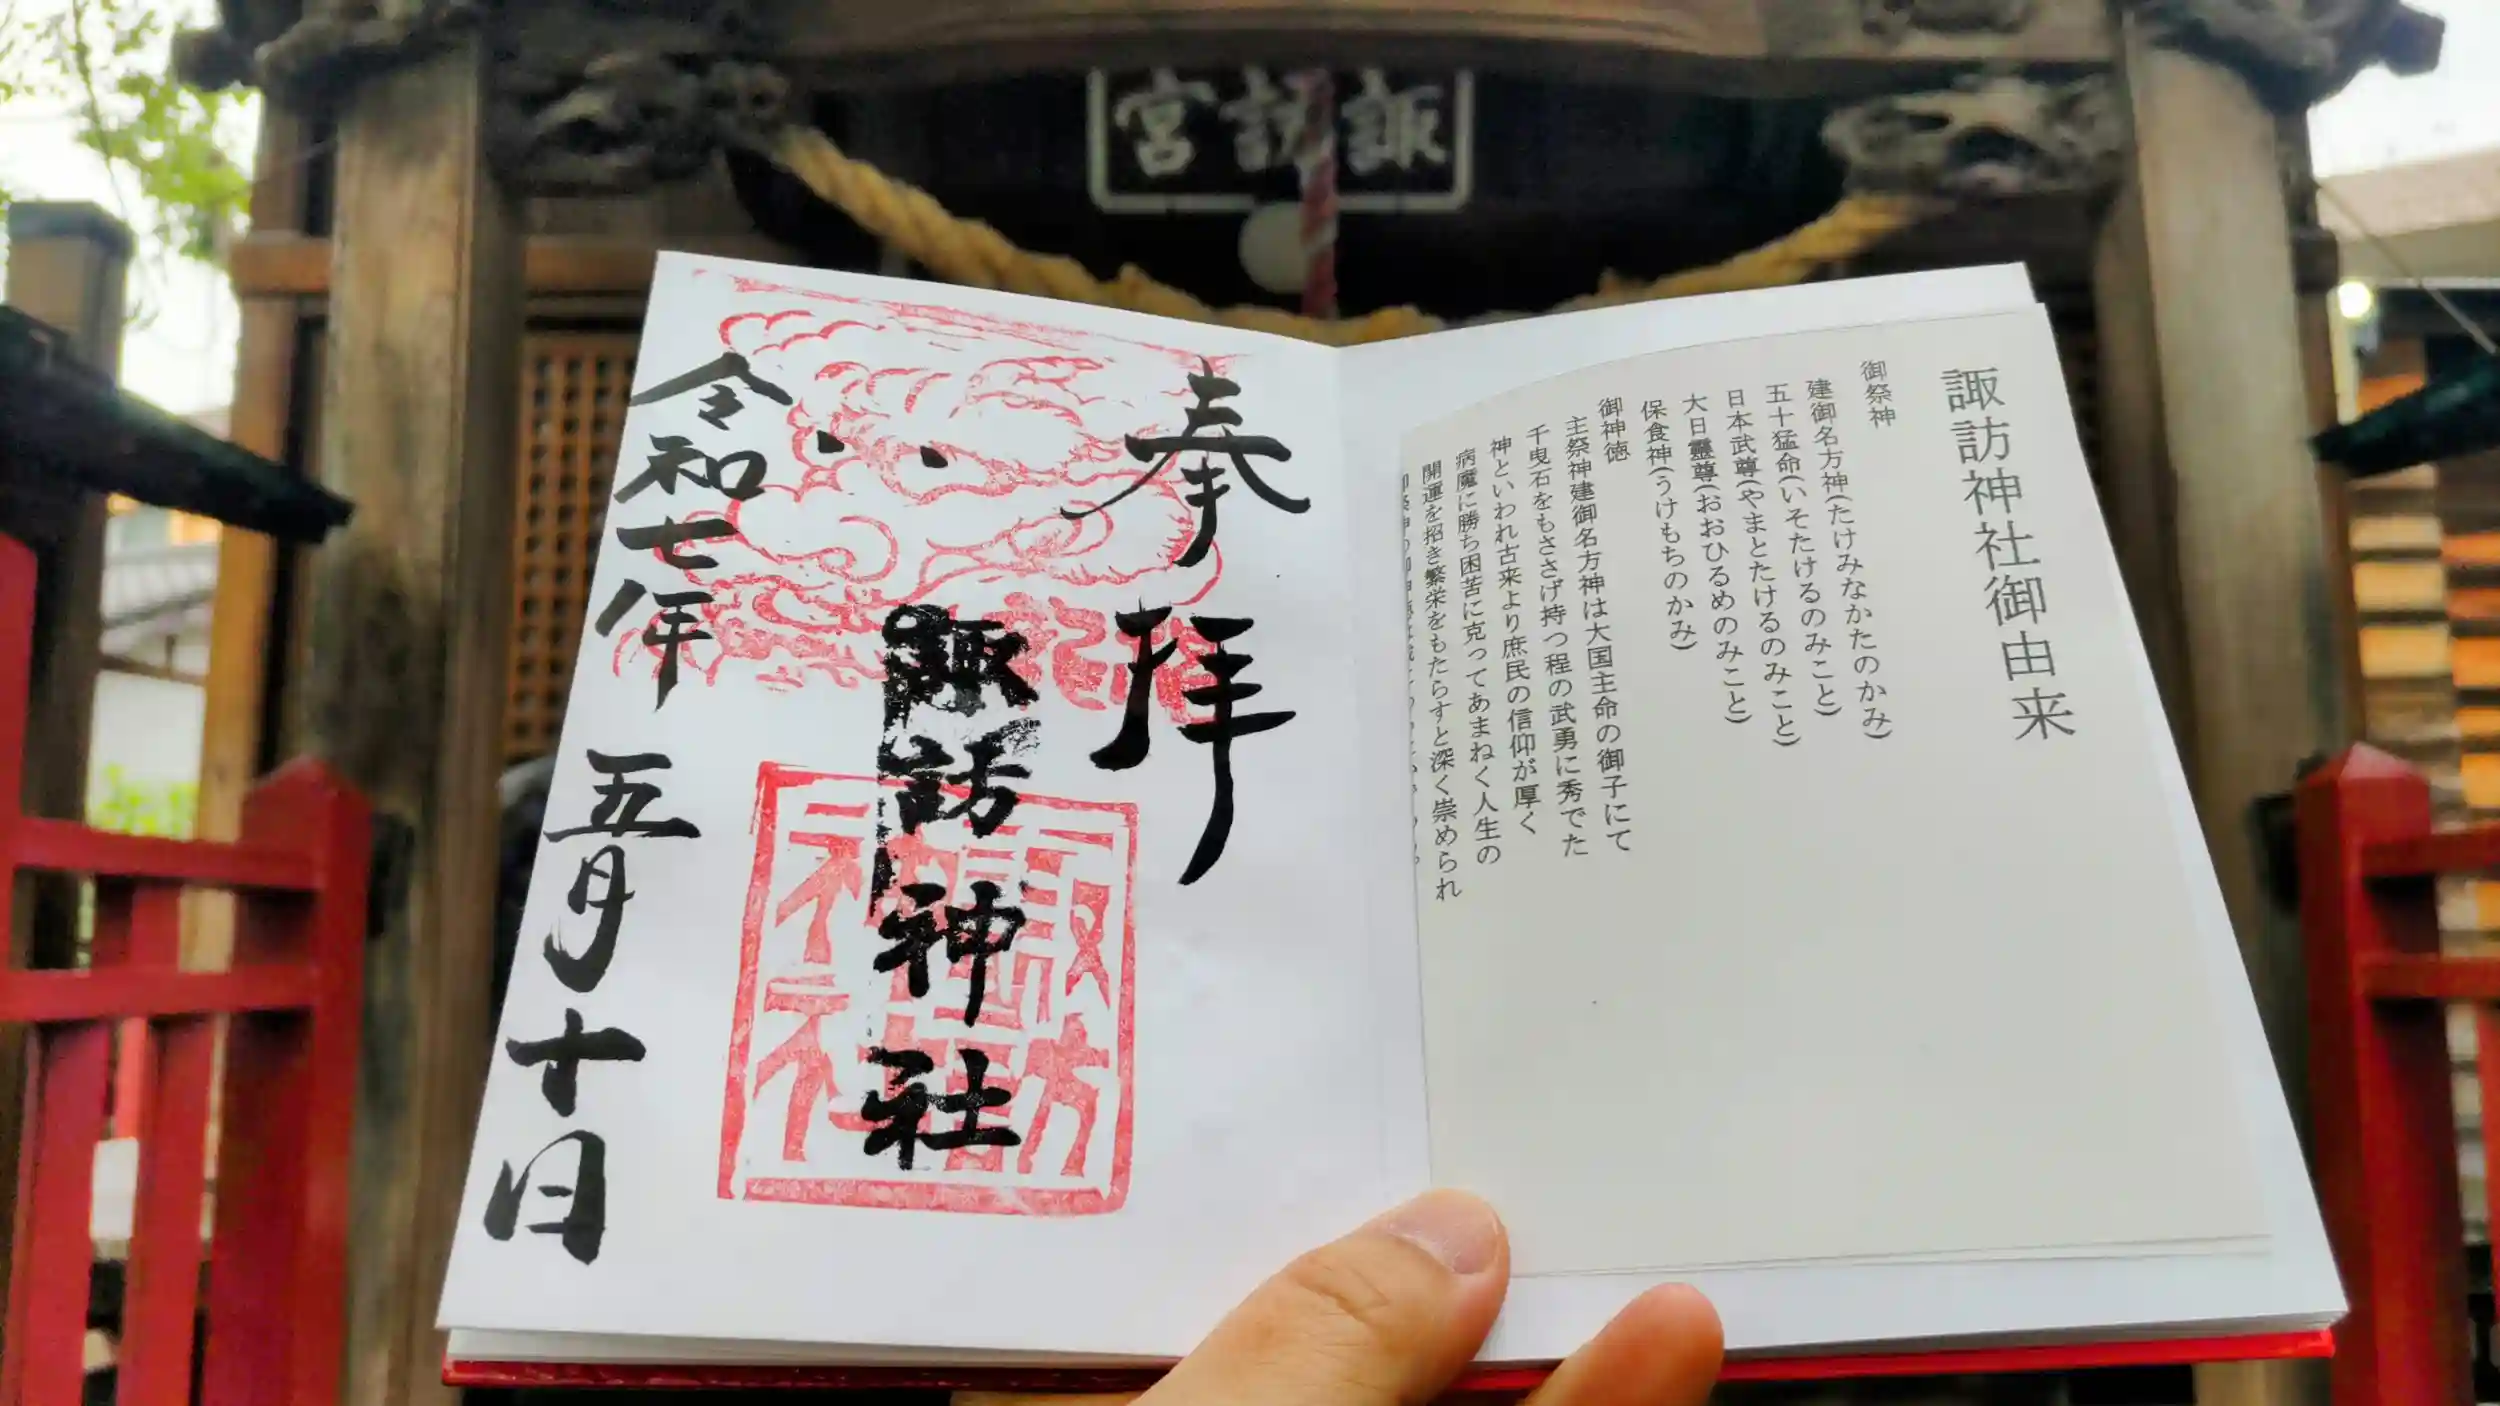 諏訪宮
諏訪神社御由来
御祭神
建御名方神(たけみなかたのかみ)
五十猛命(いそたけるのみこと)
日本武尊(やまとたけるのみこと)
大日靈尊(おおひるめのみこと)
保食神(うけもちのかみ)
御神徳
主祭神建御名方神は大国主命の御子にて
千曳石をもささげ持つ程の武勇に秀でた
神といわれ古来より庶民の信仰が厚く
病魔に勝ち困苦に克ってあまねく人生の
開運を招き繁栄をもたらすと深く崇められ
奉拝
諏訪神社
令和七年 五月十日